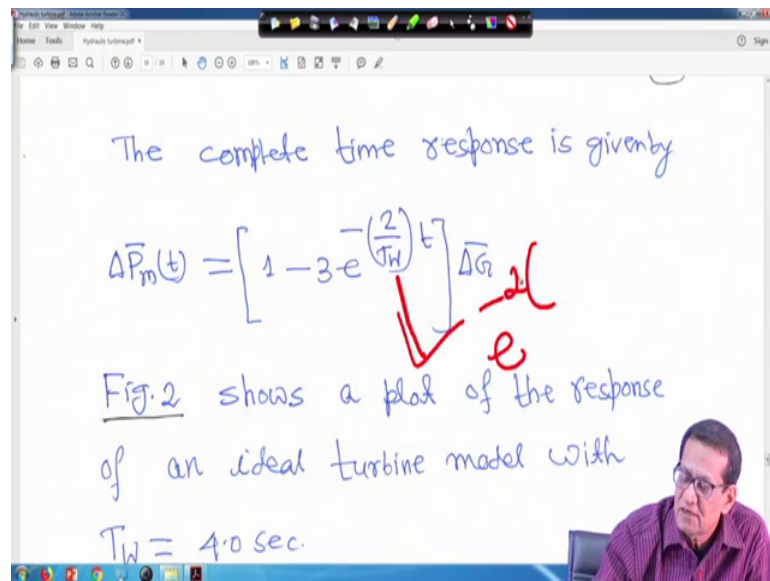 Hydraulic turbine.pdf - Adobe Acrobat Reader DC
File Edit View Window Help
Home Tools Hydraulic turbine.pdf × Sign
The complete time response is given by
ΔP̄m(t) = [1 - 3e^-(2/TW)t] ΔḠ
e^-2(
Fig.2 shows a plot of the response
of an ideal turbine model with
TW = 4.0 sec.